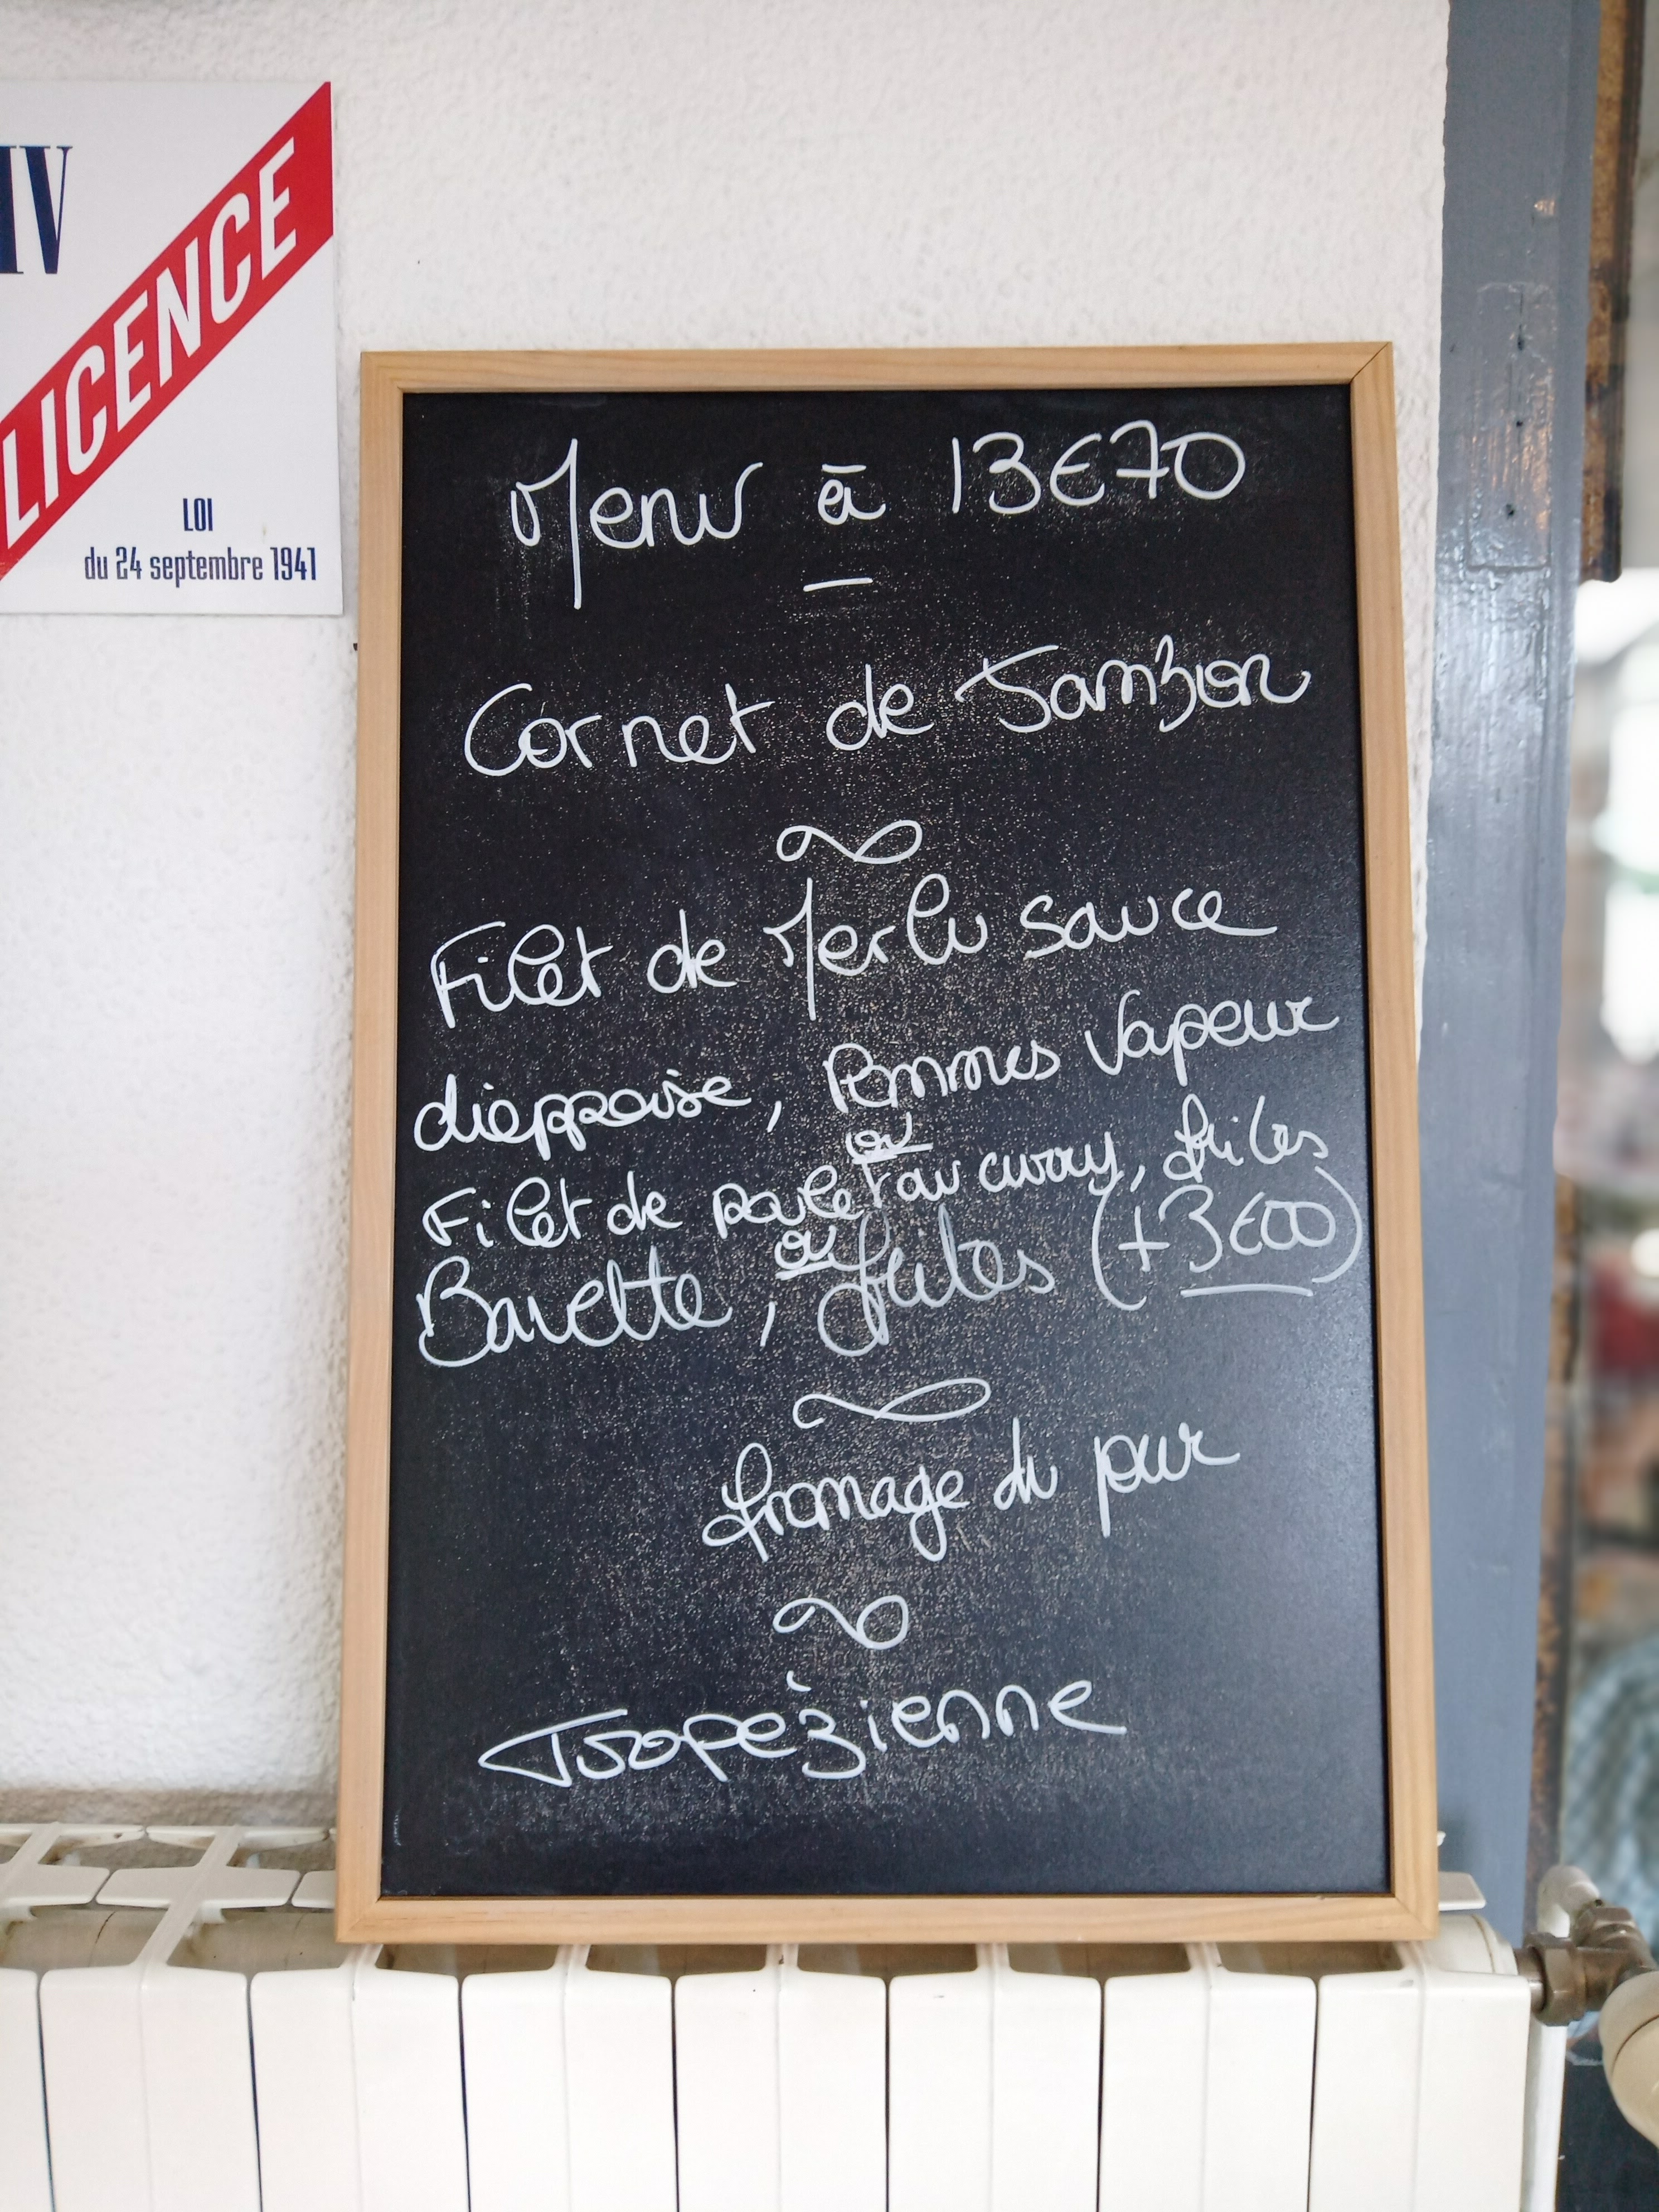 IV
LICENCE
LOI
du 24 septembre 1941
Menu à 13€70
Cornet de Jambon
Filet de Merlu sauce
dieppoise, Pommes Vapeur
ou
Filet de poulet au curry, frites
ou
Bavette, frites (+3€00)
fromage du jour
Tropèzienne